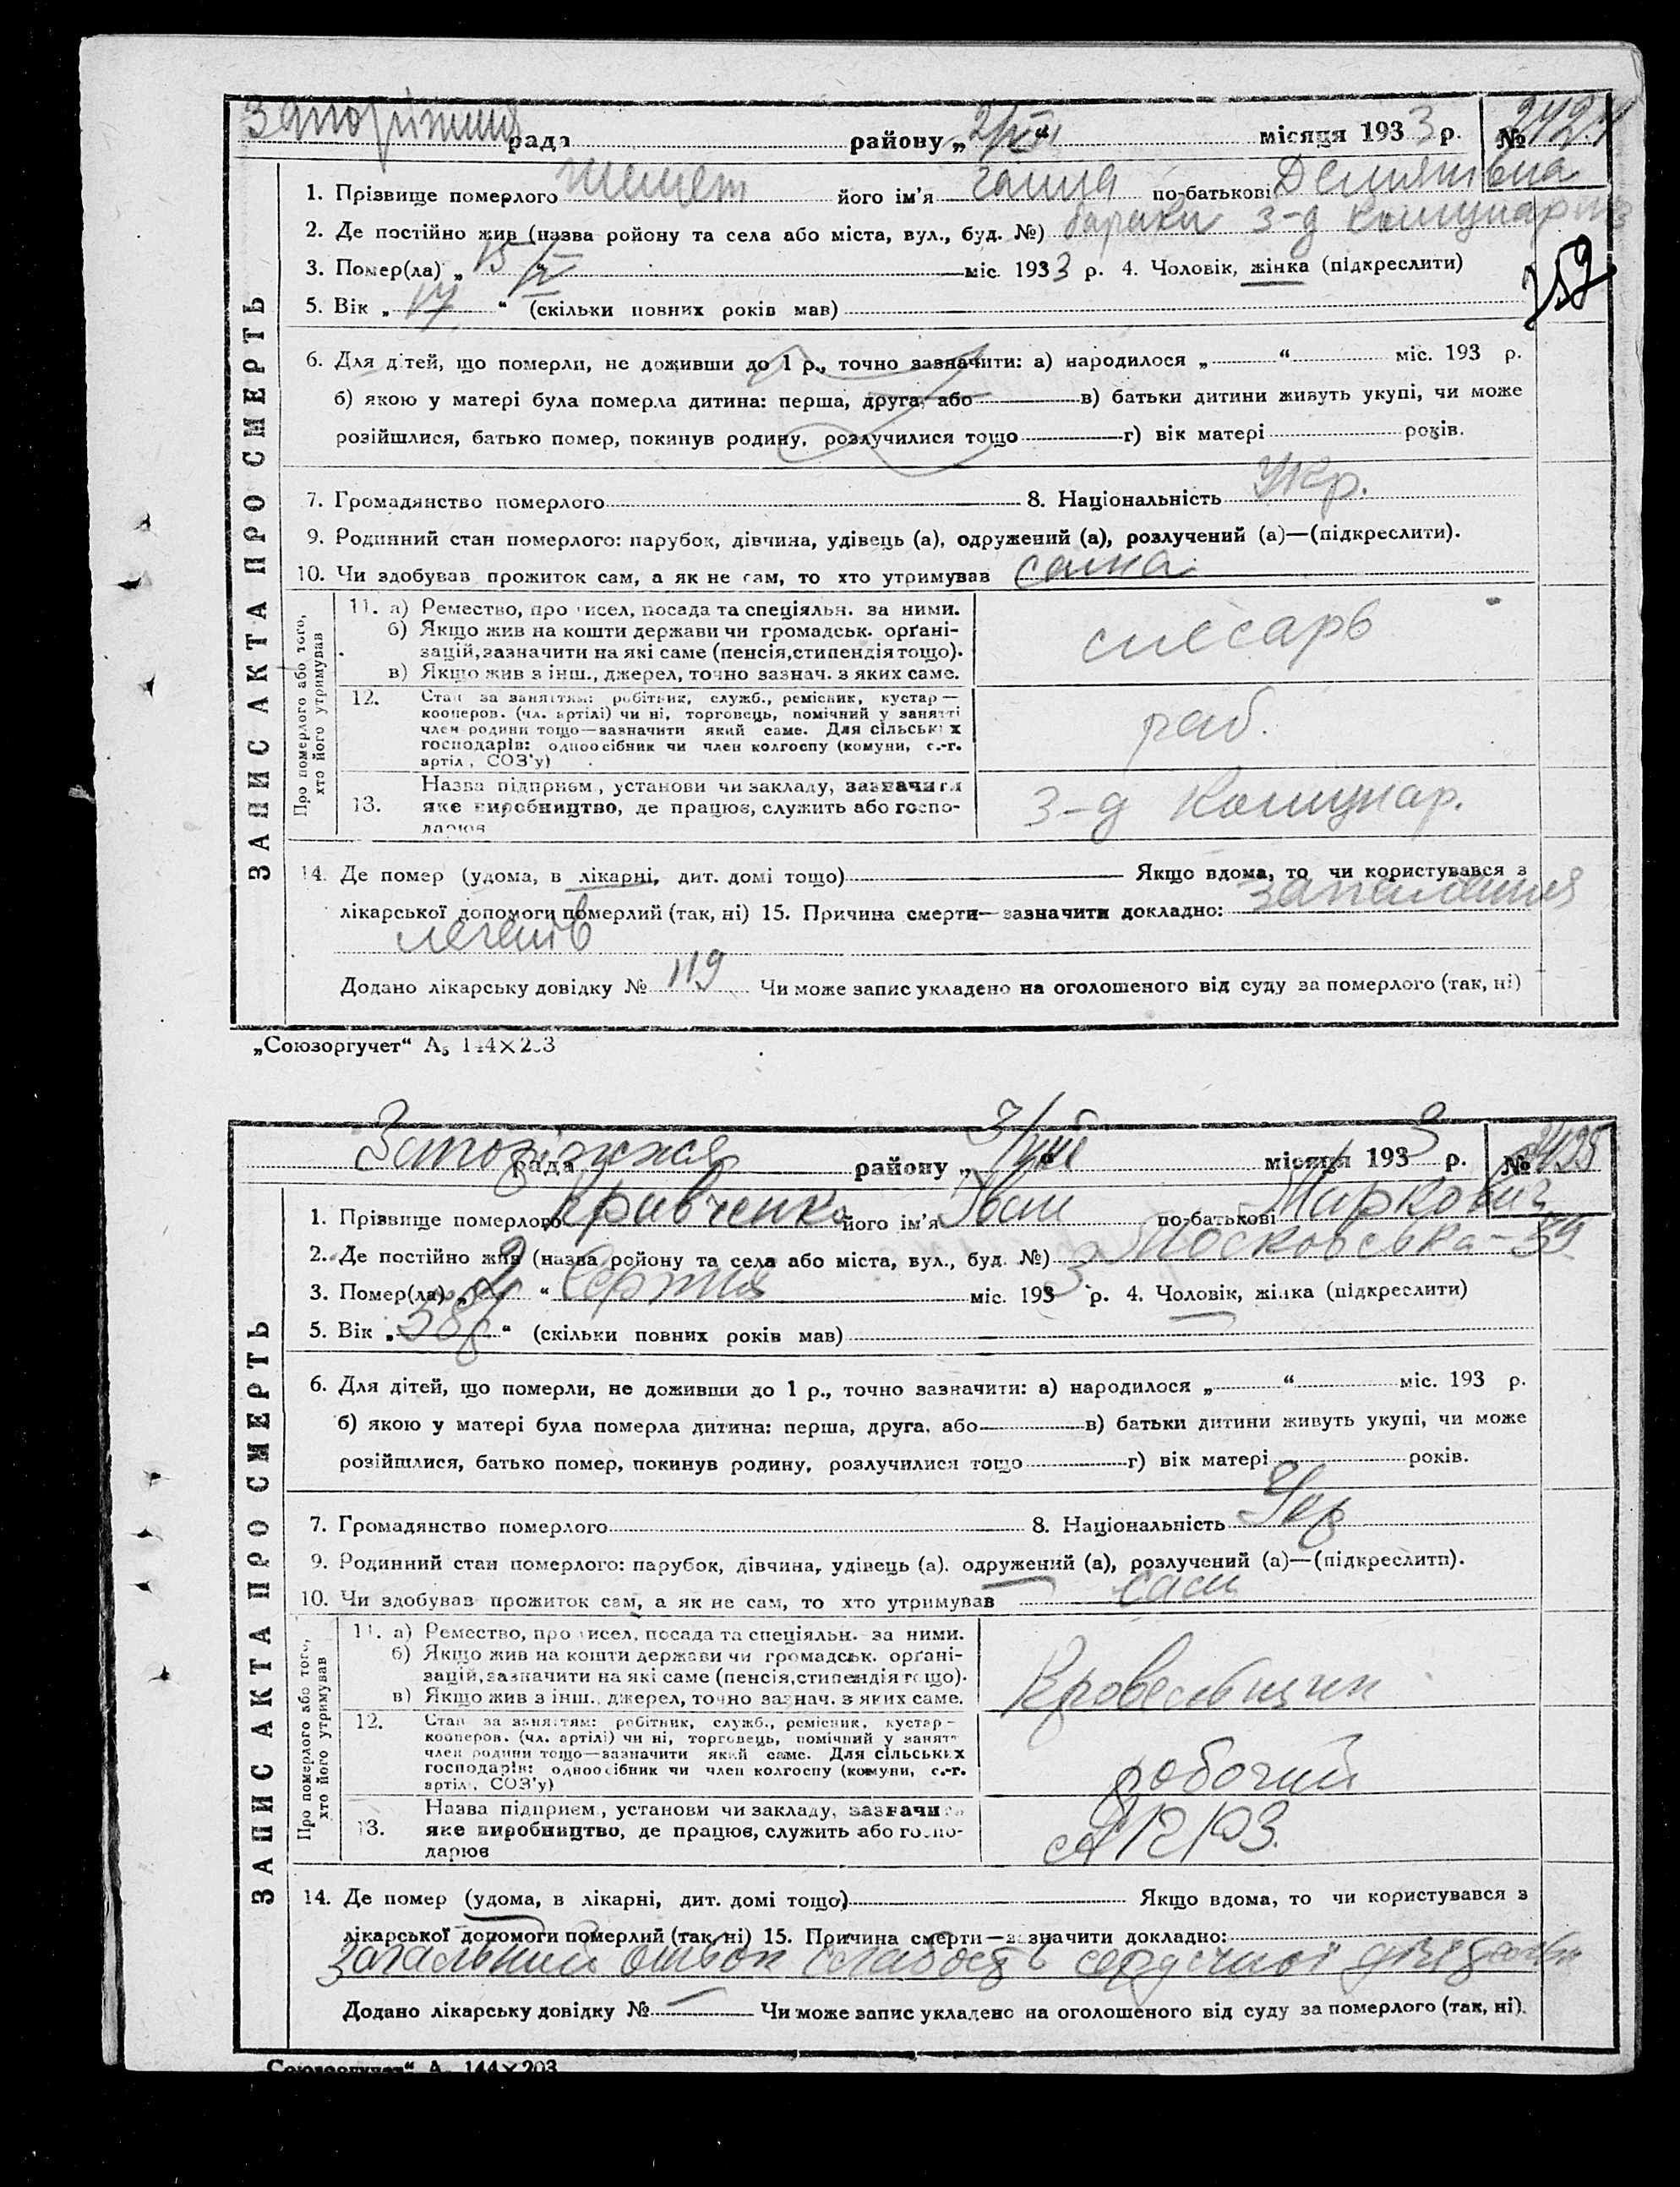 Запоріжжя рада району „2/VIII“ місяця 1933 р. № 2424
1. Прізвище померлого Шемет його ім'я Ганна по-батькові Демянівна
2. Де постійно жив (назва ройону та села або міста, вул., буд. №) бараки з-д Комунар
3. Помер(ла) „15 “ міс. 1933 р. 4. Чоловік, жінка (підкреслити)
259
5. Вік „17“ (скільки повних років мав)
6. Для дітей, що померли, не доживши до 1 р., точно зазначити: а) народилося „ “ міс. 193 р.
б) якою у матері була померла дитина: перша, друга, або в) батьки дитини живуть укупі, чи може
розійшлися, батько помер, покинув родину, розлучилися тощо г) вік матері років.
7. Громадянство померлого 8. Національність Укр.
9. Родинний стан померлого: парубок, дівчина, удівець (а), одружений (а), розлучений (а)—(підкреслити).
10. Чи здобував прожиток сам, а як не сам, то хто утримував сама
ЗАПИС АКТА ПРО СМЕРТЬ
Про померлого або того, хто його утримував
11. а) Ремество, промисел, посада та спеціяльн. за ними.
б) Якщо жив на кошти держави чи громадськ. орґані-
зацій, зазначити на які саме (пенсія, стипендія тощо).
в) Якщо жив з інш., джерел, точно зазнач. з яких саме.
слесарь
12. Стан за заняттям: робітник, служб., ремісник, кустар —
кооперов. (чл. артілі) чи ні, торговець, помічний у занятті
член родини тощо—зазначити який саме. Для сільських
господарів: одноосібник чи член колгоспу (комуни, с.-г.
артіл., СОЗ'у)
раб.
13. Назва підприєм., установи чи закладу, зазначити
яке виробництво, де працює, служить або госпо-
дарює
з-д Комунар.
14. Де помер (удома, в лікарні, дит. домі тощо) Якщо вдома, то чи користувався з
лікарської допомоги померлий (так, ні) 15. Причина смерти—зазначити докладно: запалення
легенів
Додано лікарську довідку № 119 Чи може запис укладено на оголошеного від суду за померлого (так, ні)
„Союзоргучет“ А5 144×203
Запоріжжя рада району „3/VIII“ місяця 1933 р. № 2425
1. Прізвище померлого Кравченко його ім'я Іван по-батькові Маркович
2. Де постійно жив (назва ройону та села або міста, вул., буд. №) Московська-39
3. Помер(ла) „2“ Серпня міс. 1933 р. 4. Чоловік, жінка (підкреслити)
5. Вік „38“ (скільки повних років мав)
6. Для дітей, що померли, не доживши до 1 р., точно зазначити: а) народилося „ “ міс. 193 р.
б) якою у матері була померла дитина: перша, друга, або в) батьки дитини живуть укупі, чи може
розійшлися, батько помер, покинув родину, розлучилися тощо г) вік матері років.
7. Громадянство померлого 8. Національність Укр
9. Родинний стан померлого: парубок, дівчина, удівець (а), одружений (а), розлучений (а)—(підкреслити).
10. Чи здобував прожиток сам, а як не сам, то хто утримував сам
ЗАПИС АКТА ПРО СМЕРТЬ
Про померлого або того, хто його утримував
11. а) Ремество, промисел, посада та спеціяльн. за ними.
б) Якщо жив на кошти держави чи громадськ. орґані-
зацій, зазначити на які саме (пенсія, стипендія тощо).
в) Якщо жив з інш. джерел, точно зазнач. з яких саме.
Кровельщик
12. Стан за заняттям: робітник, служб., ремісник, кустар —
кооперов. (чл. артілі) чи ні, торговець, помічний у занятт
член родини тощо—зазначити який саме. Для сільських
господарів: одноосібник чи член колгоспу (комуни, с.-г.
артіл., СОЗ'у)
робочий
13. Назва підприєм., установи чи закладу, зазначити
яке виробництво, де працює, служить або госпо-
дарює
14. Де помер (удома, в лікарні, дит. домі тощо) Якщо вдома, то чи користувався з
лікарської допомоги померлий (так, ні) 15. Причина смерти—зазначити докладно:
загальний отьок слабость сердечної
Додано лікарську довідку № — Чи може запис укладено на оголошеного від суду за померлого (так, ні).
„Союзоргучет“ А5 144×203